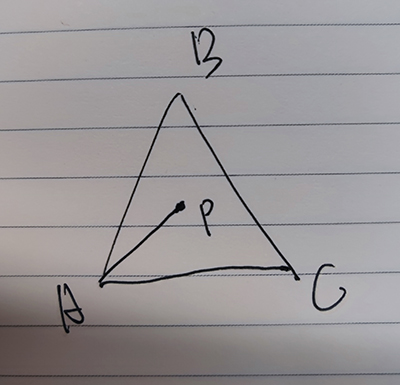 B
P
A
C